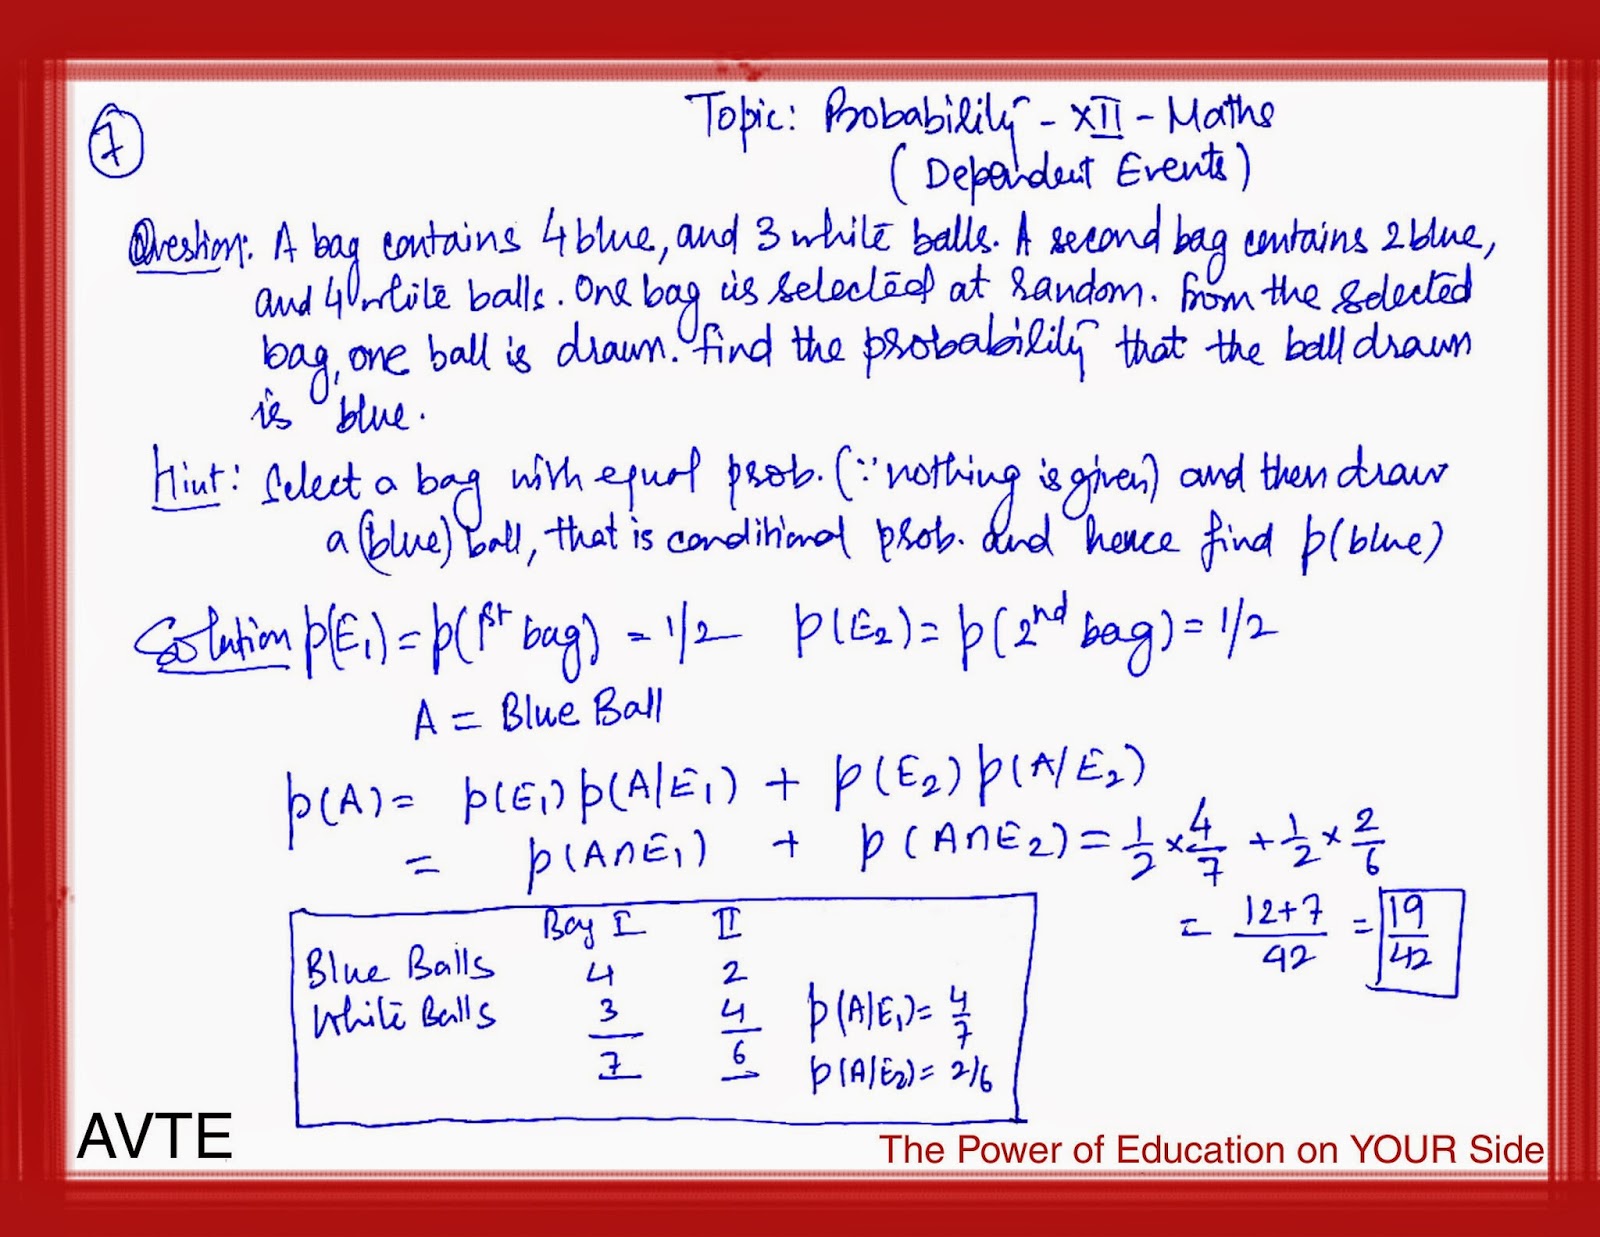 7
Topic: Probability - XII - Maths
(Dependent Events)
Question: A bag contains 4 blue, and 3 white balls. A second bag contains 2 blue,
and 4 white balls. One bag is selected at random. From the selected
bag, one ball is drawn. find the probability that the ball drawn
is blue.
Hint: Select a bag with equal prob. (∵ nothing is given) and then draw
a (blue) ball, that is conditional prob. and hence find p(blue)
Solution p(E₁) = p(1st bag) = 1/2 p(E₂) = p(2nd bag) = 1/2
A = Blue Ball
p(A) = p(E₁) p(A/E₁) + p(E₂) p(A/E₂)
= p(A∩E₁) + p(A∩E₂) = 1/2 × 4/7 + 1/2 × 2/6
= 12+7/42 = 19/42
Bag I II
Blue Balls 4 2
White Balls 3 4 p(A/E₁) = 4/7
7 6 p(A/E₂) = 2/6
AVTE
The Power of Education on YOUR Side